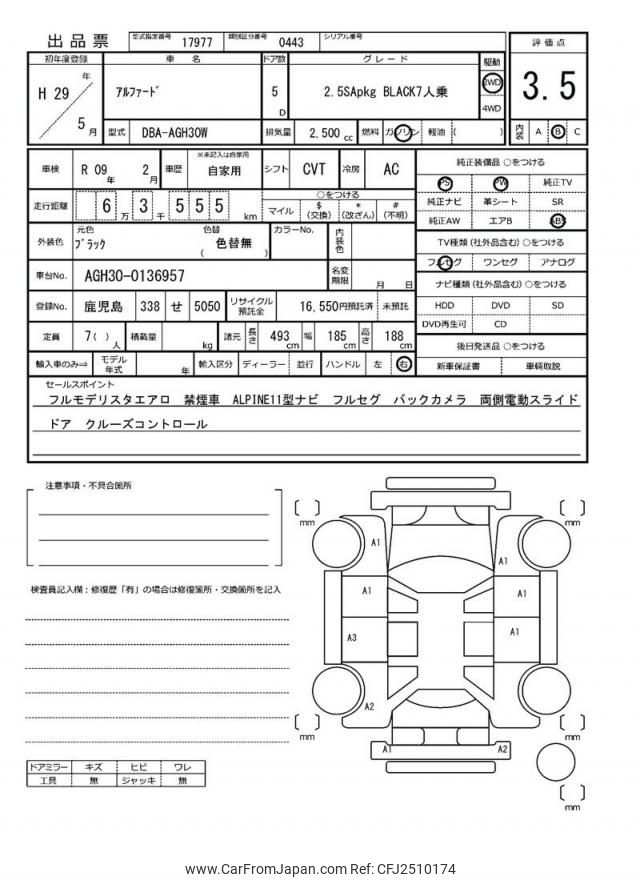 出品票 型式指定番号 17977 類別区分番号 0443 シリアル番号
初年度登録 車 名 ドア数 グレード 駆動 評価点
H 29 年 5 月 アルファード 5 D 2.5SApkg BLACK7人乗 2WD 4WD 3.5
型式 DBA-AGH30W 排気量 2,500 cc 燃料 ガソリン 軽油 ( ) 内装 A B C
車検 R 09 年 2 月 車歴 ※未記入は自家用 自家用 シフト CVT 冷房 AC 純正装備品 ○をつける
PS PW 純正TV
走行距離 6 万 3 千 5 5 5 km ○をつける マイル $ (交換) * (改ざん) # (不明) 純正ナビ 革シート SR
純正AW エアB ABS
外装色 元色 ブラック 色替 ( 色替無 ) カラーNo. 内装色 TV種類 (社外品含む) ○をつける
フルセグ ワンセグ アナログ
車台No. AGH30-0136957 名変期限 月 日 ナビ種類 (社外品含む) ○をつける
登録No. 鹿児島 338 せ 5050 リサイクル預託金 16,550円預託済 未預託 HDD DVD SD
DVD再生可 CD
定員 7( ) 人 積載量 kg 諸元 長さ 493 cm 幅 185 cm 高さ 188 cm 後日発送品 ○をつける
輸入車のみ⇒ モデル年式 年 輸入区分 ディーラー 並行 ハンドル 左 右 新車保証書 車輌取説
セールスポイント
フルモデリスタエアロ 禁煙車 ALPINE11型ナビ フルセグ バックカメラ 両側電動スライド
ドア クルーズコントロール
注意事項・不具合箇所
検査員記入欄：修復歴「有」の場合は修復箇所・交換箇所を記入
mm
mm
A1
A1
A1
A1
A3
A1
A2
mm
mm
A1
A2
mm
ドアミラー キズ ヒビ ワレ
工具 無 ジャッキ 無
www.CarFromJapan.com Ref: CFJ2510174